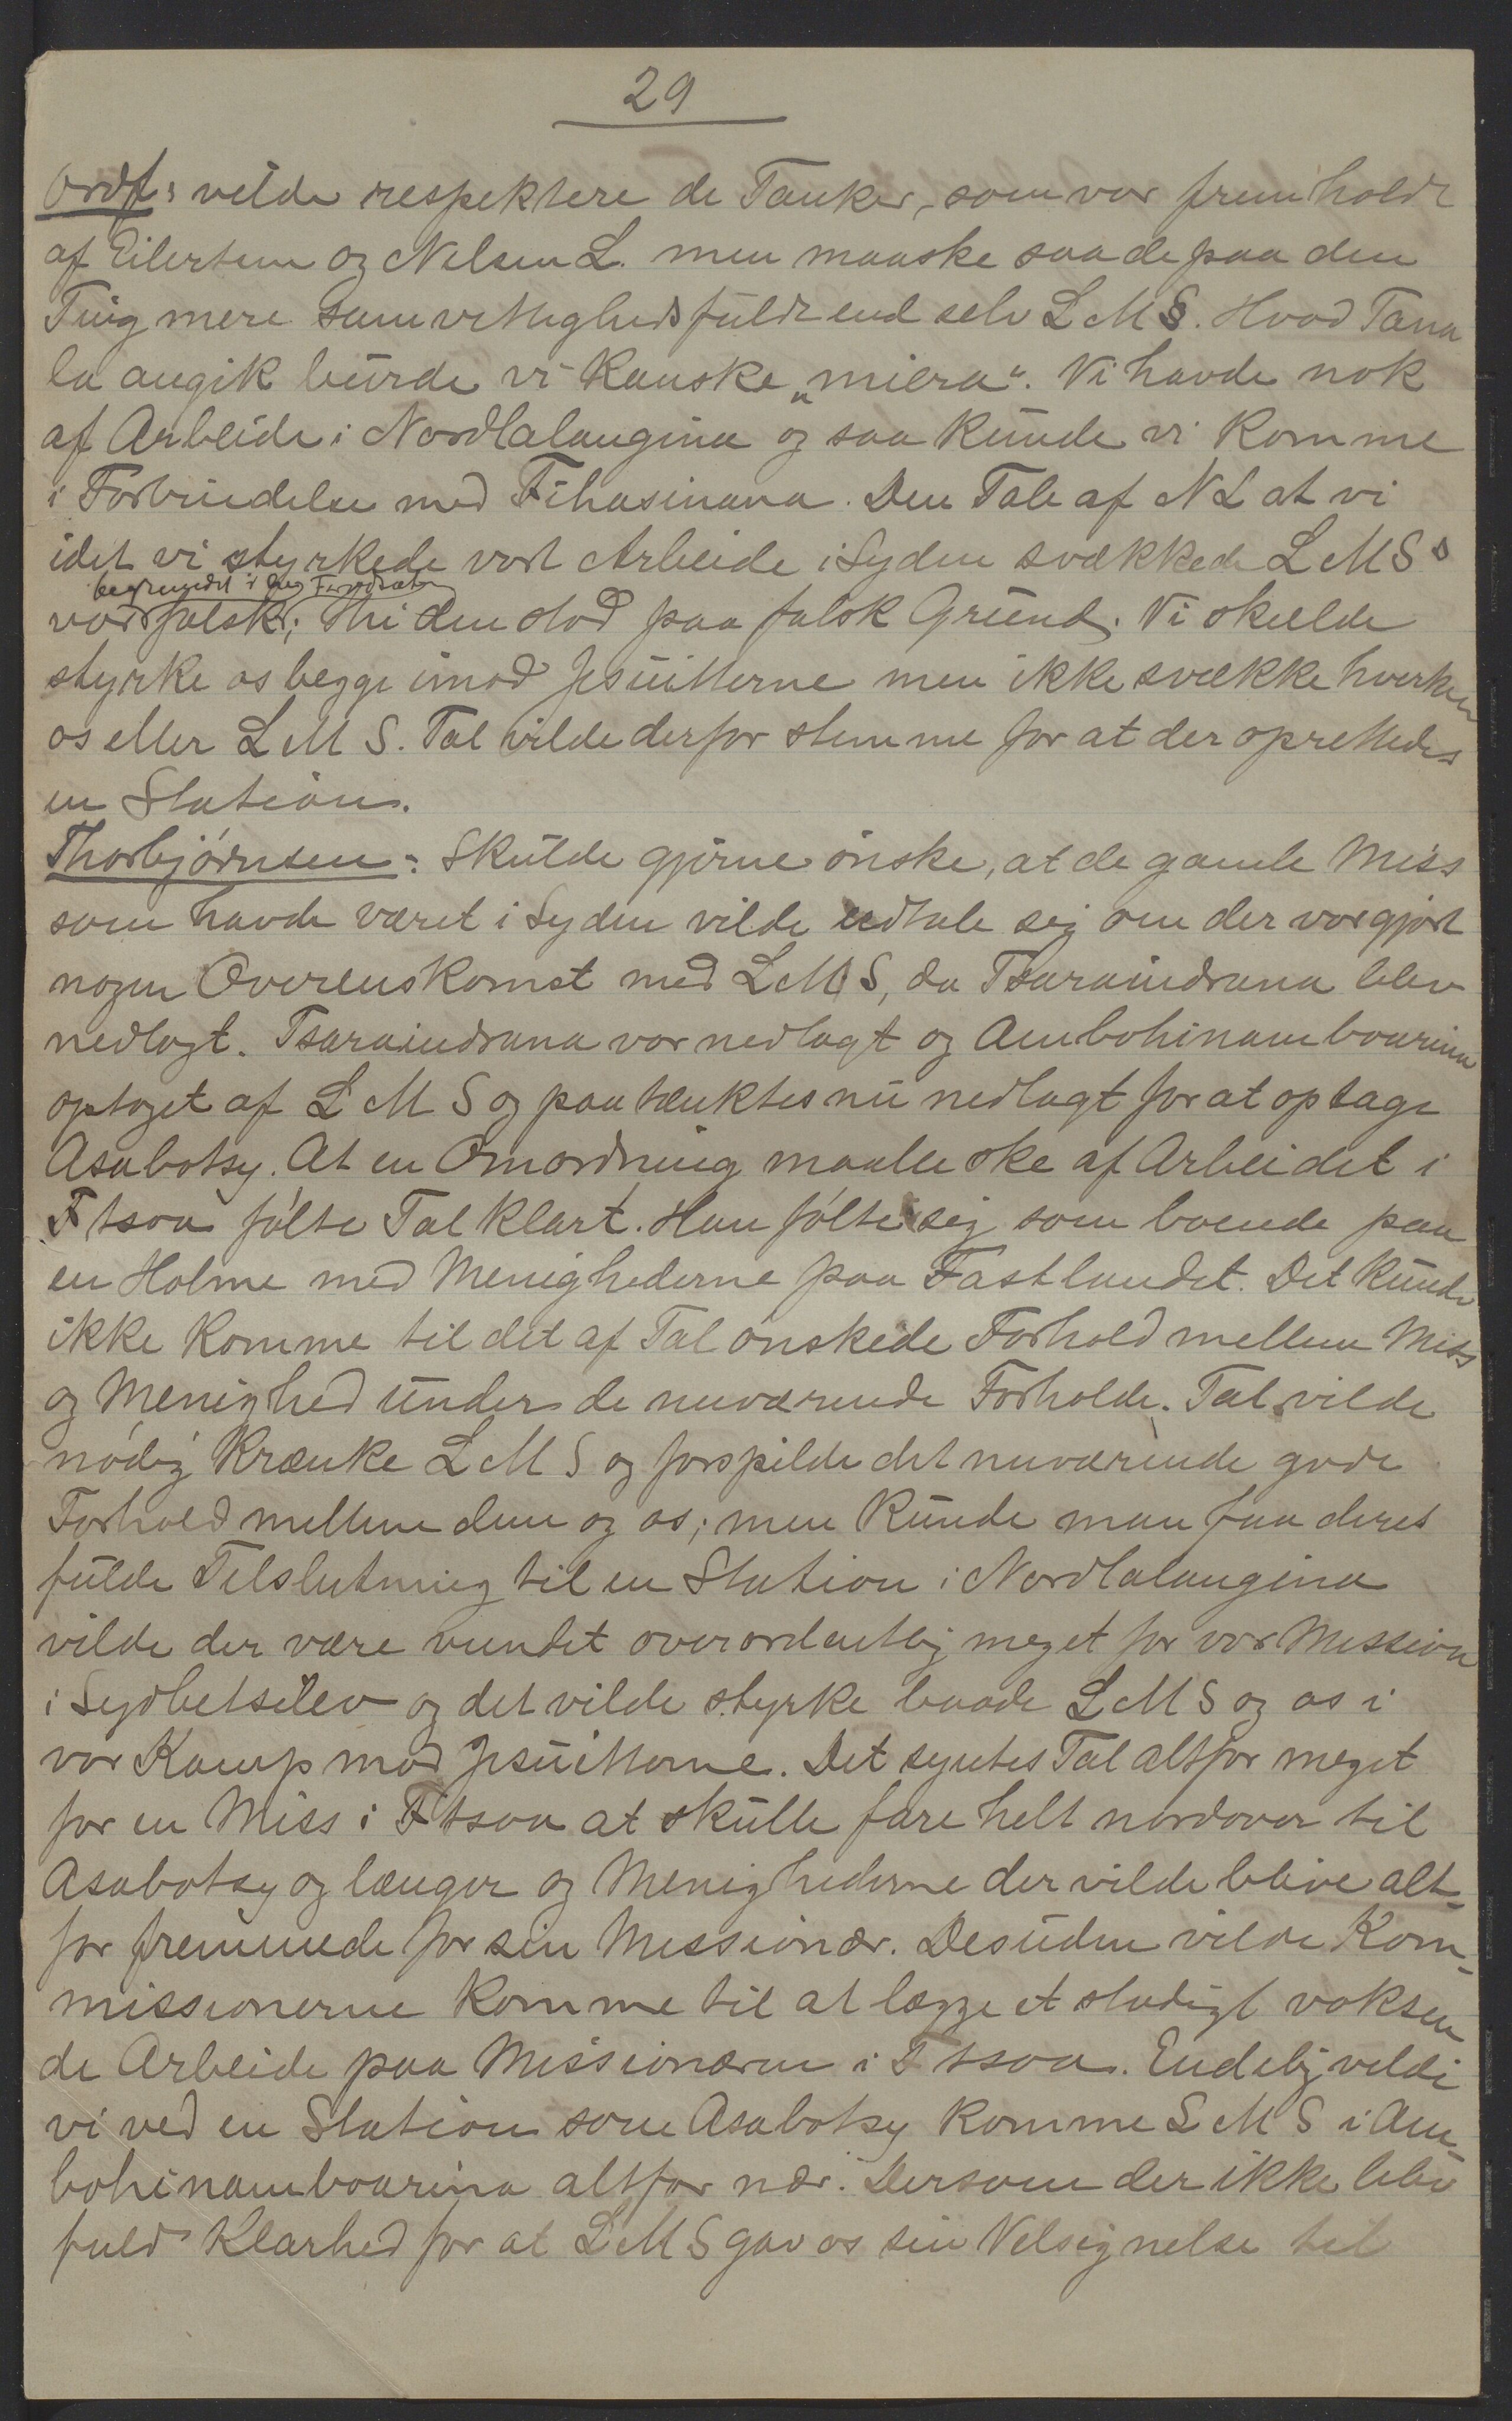 29
Ordf: vilde respektere de Tanker, som var fremholdt
af Eilertsen og Nilsen L. men maaske saa de paa den
Ting mere samvittighedsfuldt end selv L M S. Hvad Tana
la angik burde vi kanske „miera“. Vi havde nok
af Arbeide i Nordlalangina og saa kunde vi komme
i Forbindelse med Fihasinana. Den Tale af N L at vi
idet vi styrkede vort Arbeide i Syden svækkede L M Ss
var falsk; thi den stod paa falsk Grund. Vi skulde
styrke os begge imod Jesuitterne men ikke svække hverken
os eller L M S. Tal vilde derfor stemme for at der oprettedes
en Station.
Thorbjørnsen: Skulde gjerne ønske, at de gamle Miss
som havde været i Syden vilde udtale sig om der var gjort
nogen Overenskomst med L M S, da Tsaraindrana blev
nedlagt. Tsaraindrana var nedlagt og Ambohinamboarina
optaget af L M S og paatænktes nu nedlagt for at optage
Asabotsy. At en Omordning maatte ske af Arbeidet i
F tsoa følte Tal klart. Han følte sig som boende paa
en Holme med Menighederne paa Fastlandet. Det kunde
ikke komme til det af Tal ønskede Forhold mellem Miss
og Menighed under de nuværende Forholde. Tal vilde
nødig krænke L M S og forspilde det nuværende gode
Forhold mellem dem og os; men kunde man faa deres
fulde Tilslutning til en Station i Nordlalangina
vilde der være vundet overordentlig meget for vor Mission
i Sydbetsileo og det vilde styrke baade L M S og os i
vor Kamp mod Jesuitterne. Det syntes Tal altfor meget
for en Miss i F tsoa at skulle fare helt nordover til
Asabotsy og længer og Menighederne der vilde blive alt-
for fremmede for sin Missionær. Desuden vilde Kom-
missionerne komme til at lægge et stadigt voksen
de Arbeide paa Missionæren i F tsoa. Endelig vilde
vi ved en Station som Asabotsy komme L M S i Am-
bohinamboarina altfor nær. Dersom der ikke blev
fuld Klarhed for at L M S gav os sin Velsignelse til